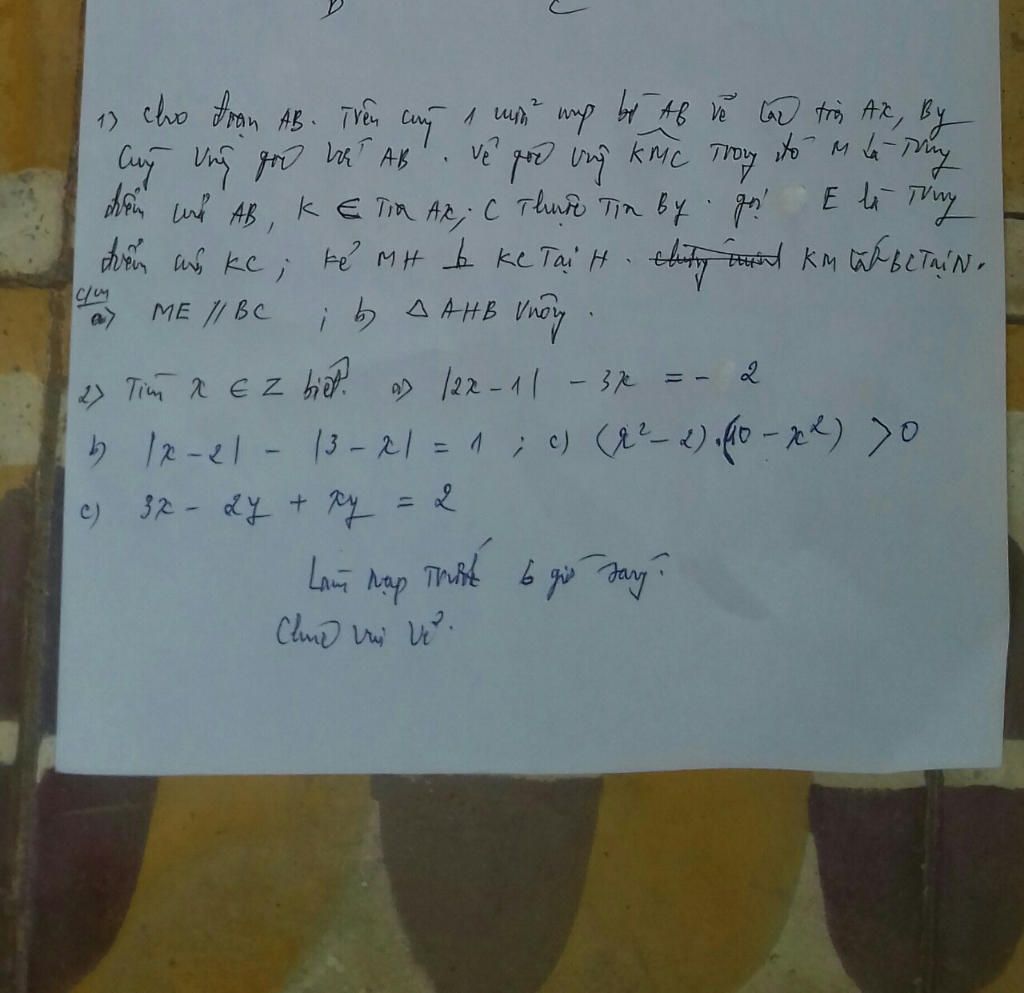 B C
1) Cho đoạn AB. Trên cùng 1 nửa mp bờ AB vẽ các tia Ax, By
Cùng vuông góc với AB. Vẽ góc vuông KMC trong đó M là Trung
điểm của AB, K ∈ Tia Ax; C Thuộc Tia By. gọi E là Trung
điểm của KC; Kẻ MH ⊥ KC Tại H. KM cắt BC Tại N.
c/m
a) ME // BC ; b) △ AHB Vuông.
2) Tìm x ∈ Z biết. a) |2x - 1| - 3x = - 2
b) |x - 2| - |3 - x| = 1 ; c) (x² - 2).(10 - x²) > 0
c) 3x - 2y + xy = 2
Làm nạp Trước 6 giờ
Chúc vui vẻ.